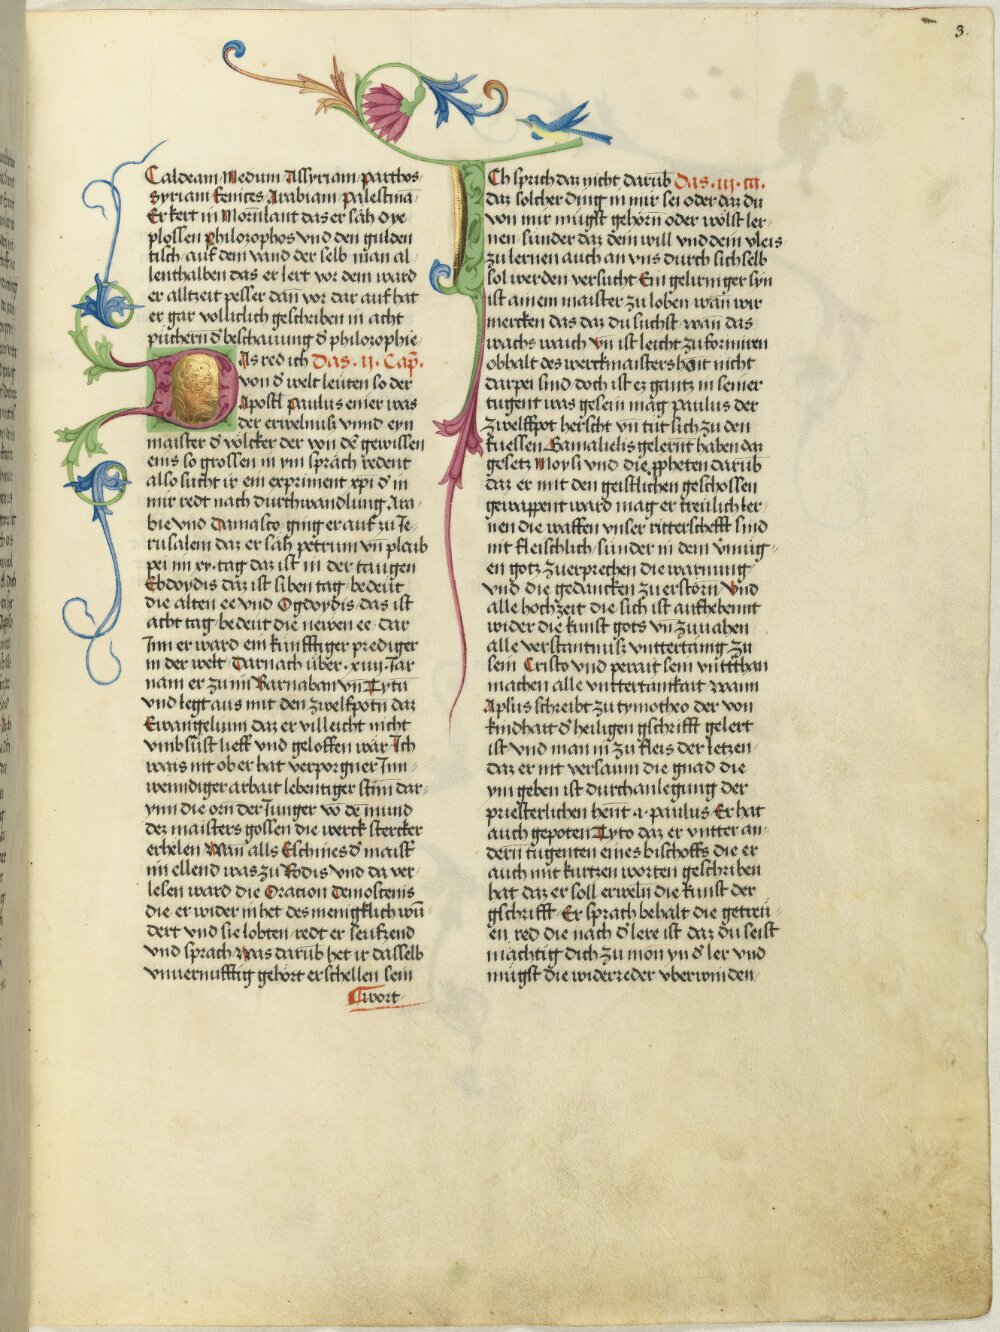 3.
Caldeam Medum Assyriam parthos
Syriam fenices Arabiam palestina
Er kert in Mornlant das er säh dye
plossen philozophos vnd den gulden
tisch auf dem sand der selb man al
lenthalben das er lert vor dem ward
er alltzeit pesser dan vor dar auf hat
er gar volliclich geschriben in acht
püchern d̕ beschauung d̕ philozophie
DAs red ich Das .ij. Cap̄.
von d̕ welt leuten so der
Apostl Paulus einer was
der erwelnuß vnnd eyn
maister d̕ völcker der von dē gewissen
eins so grossen in ym sprach redent
also sucht ir ein experiment xpi d̕ in
mir redt nach durchwandlung Ara
bie vnd Damasco ging er auf zu Je
rusalem daz er säh petrum vn̄ plaib
pei im xv. tag daz ist in der taugen
Ebdoydis daz ist siben tag bedeüt
die alten ee vnd Ogdoydis das ist
acht tag bedeut die newen ee dar
Jnn er ward ein künfftiger prediger
in der welt Darnach über .xiiij. Jar
nam er zu im Barnaban vn̄ Tytū
vnd legt aus mit den zwelfpotn daz
Ewangelium daz er villeicht nicht
vmbsüst lieff vnd geloffen wär Ich
wais nit ob er hat verporgner Jnn
wenndiger arbait lebentiger stim dar
ynn die orn der Junger vō dē mund
dez maisters gossen die werck stercker
erhelen Wan alls Eschines d̕ maist̕
im ellend was zu Rodis vnd da ver
lesen ward die Oration Demostenis
die er wider in het des menigklich wū
dert vnd sie lobten redt er seufzend
vnd sprach Was darūb het ir dasselb
vnuernufftig gehört erschellen sein
wort
ICh sprich daz nicht darūb Das .iij. ca.
daz solcher ding in mir sei oder daz du
von mir mügst gehörn oder wölst ler
nen sunder daz dein will vnd dein vleis
zu lernen auch an vns durch sich selb
sol werden versucht Ein gelirniger syn
ist an ein maister zu loben wan wir
mercken das daz du suchst wan das
wachs waich vn̄ ist leicht zu formiren
ob halt des werckmaisters hant nicht
darpei sind doch ist ez gantz in seiner
tugent was gesein mag Paulus der
zwelffpot herscht vn̄ tüt sich zu den
fuessen Gamalielis gelernt haben daz
gesetz Moysi vnd die ꝓpheten darūb
daz er mit den geistlichen geschossen
gewappent ward mag er treulich ler
nen die waffen vnser ritterschefft sind
nit fleischlich sunder in dem v̄müg
en gotz zuersprechen die warnung
vnd die gedancken zuerstörn Vnd
alle hochzeit die sich ist aufhebennt
wider die kunst gots vn̄ zu uahen
alle verstantnuß vnttertänig zu
sein Cristo vnd perait sein vnttthan
machen alle vnttertänikait wann
Aplus schreibt zu tymotheo der von
kindhait d̕ heiligen gschrifft gelert
ist vnd man in zu fleis der letzen
daz er nit versaum die gnad die
ym geben ist durch anlegung der
priesterlichen hent .1. paulus Er hat
auch gepoten Tyto daz er vntter an
dern tugenten eines bischoffs die er
auch mit kurtzen worten geschriben
hat daz er soll erweln die kunst der
gschrifft Er sprach behalt die getreü
en red die nach d̕ lere ist daz du seist
mächtig dich zu mon yn d̕ ler vnd
mügst die widerreder vberwinden